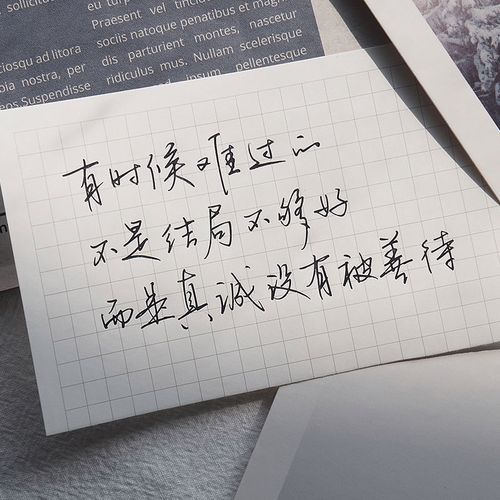 sollicitud
eu turp
Praesent vel tincid
ciosqu ad litora
sociis natoque penatibus et magn
oia nostra, per
dis parturient montes, nascetur
eos. Suspendisse
ridiculus mus. Nullam scelerisque
ipsum pellentesque
有时候难过的
不是结局不够好
而是真诚没有被善待